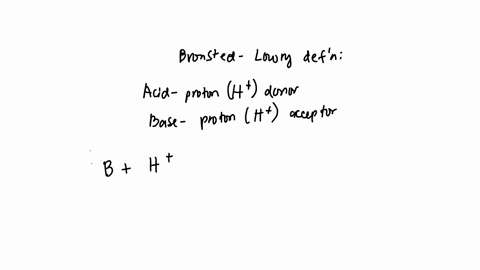 Bronsted - Lowry def'n:
Acid - proton (H⁺) donor
Base - proton (H⁺) acceptor
B + H⁺